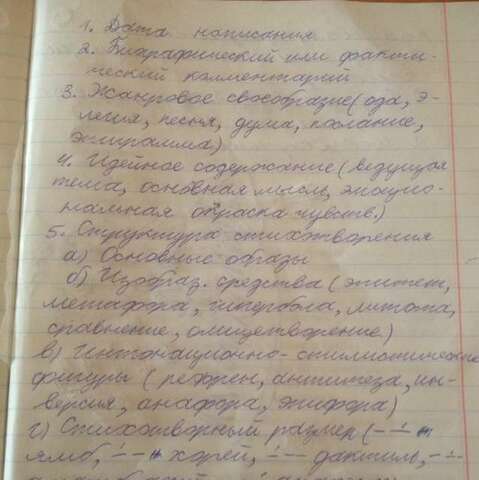 1. Дата написания
2. Биаграфический или факти-
ческий комментарий
3. Жанровое свообразие (ода, э-
легия, песня, дума, послание,
эпиграмма)
4. Идейное содержание (ведущая
тема, основная мысль, эмоцио-
нальная окраска чувств.)
5. Структура стихотворения
а) Основные образы
б) Изобраз. средства (эпитет,
метафора, гипербола, литота,
сравнение, олицетворение)
в) Интонационно-стилистические
фигуры (рефрен, антитеза, ин-
версия, анафора, эпифора)
г) Стихотворный размер (
ямб, хорей, дактиль,